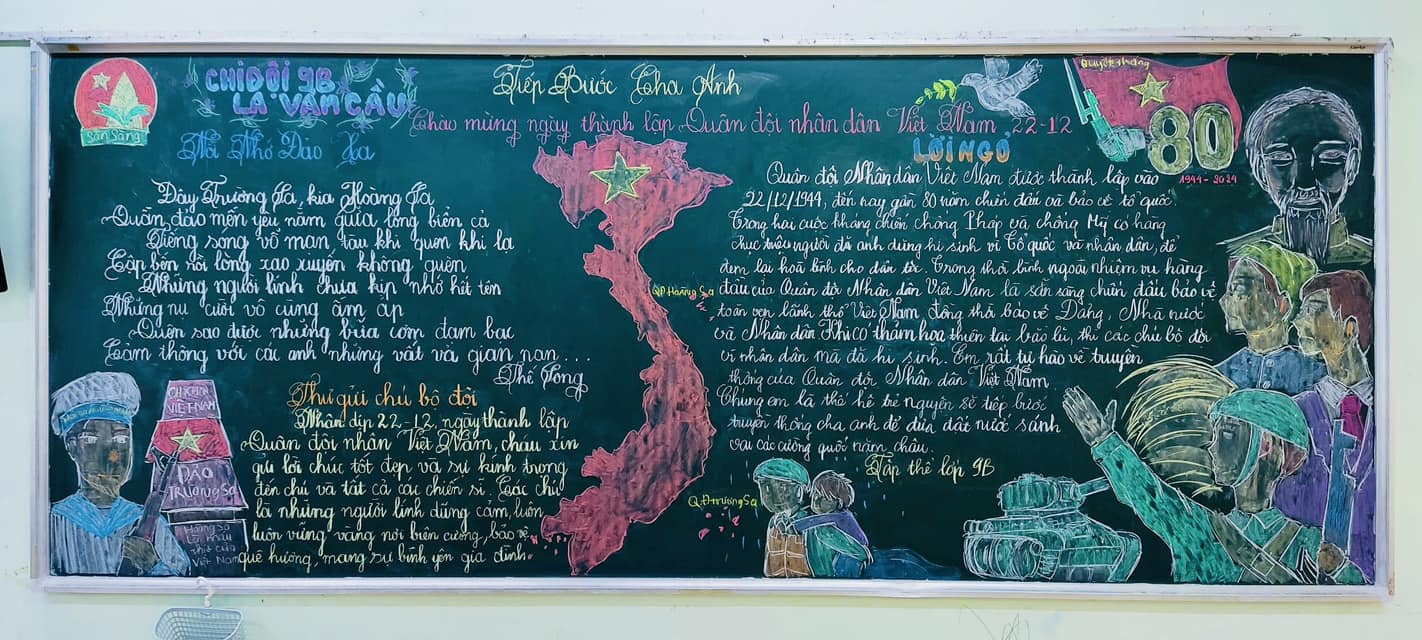 Sẵn Sàng
CHI ĐỘI 9B
LÀ VĂN CẦU
Tiếp Bước Cha Anh
Chào mừng ngày thành lập Quân đội nhân dân Việt Nam 22-12
Nỗi Nhớ Đảo Xa
Đây Trường Sa, kia Hoàng Sa
Quần đảo mến yêu nằm giữa lòng biển cả
Tiếng sóng vỗ mạn tàu khi quen khi lạ
Cập bến rồi lòng xao xuyến không quên
Những người lính chưa kịp nhớ hết tên
Những nụ cười vô cùng ấm áp
Quên sao được những bữa cơm đạm bạc
Cảm thông với các anh những vất vả gian nan...
Thế Song
CHXHCN
VIỆT NAM
ĐẢO
TRƯỜNG SA
Hoàng Sa
là máu
thịt của
Việt Nam
Thư gửi chú bộ đội
Nhân dịp 22-12, ngày thành lập
Quân đội nhân Việt Nam, cháu xin
gửi lời chúc tốt đẹp và sự kính trọng
đến chú và tất cả các chiến sĩ. Các chú
là những người lính dũng cảm, luôn
luôn vững vàng nơi biên cương, bảo vệ
quê hương, mang sự bình yên gia đình.
QĐ Hoàng Sa
QĐ Trường Sa
Quyết thắng
80
1944-2024
LỜI NGỎ
Quân đội Nhân dân Việt Nam được thành lập vào
22/12/1944, đến nay gần 80 năm chiến đấu và bảo vệ tổ quốc.
Trong hai cuộc kháng chiến chống Pháp và chống Mỹ có hàng
chục triệu người đã anh dũng hi sinh vì Tổ quốc và nhân dân, để
đem lại hoà bình cho dân tộc. Trong thời bình ngoài nhiệm vụ hàng
đầu của Quân đội Nhân dân Việt Nam là sẵn sàng chiến đấu bảo vệ
toàn vẹn lãnh thổ Việt Nam đồng thời bảo vệ Đảng, Nhà nước
và Nhân dân. Khi có thảm hoạ thiên tai bão lũ, thì các chú bộ đội
vì nhân dân mà đã hi sinh. Em rất tự hào về truyền
thống của Quân đội Nhân dân Việt Nam
Chúng em là thế hệ trẻ nguyện sẽ tiếp bước
truyền thống cha anh để đưa đất nước sánh
vai các cường quốc năm châu.
Tập thể lớp 9B